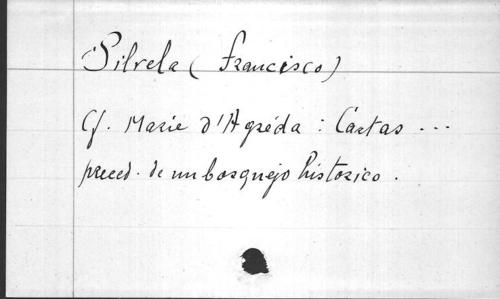 Silvela (Francisco)
Cf. Marie d'Agréda : Cartas ...
preced. de un bosquejo historico.